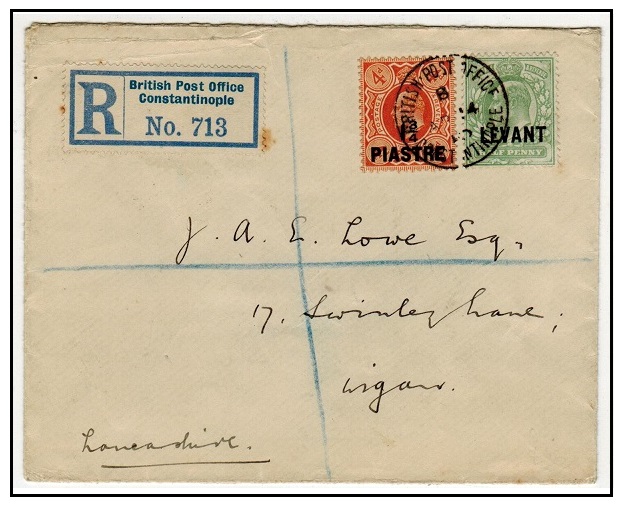 British Post Office
Constantinople
R
No. 713
4d
1 3/4
PIASTRE
BRITISH POST OFFICE
CONSTANTINOPLE
LEVANT
HALF PENNY
J. A. E. Lowe Esq.
17, Swinley Lane;
Wigan.
Lancashire.